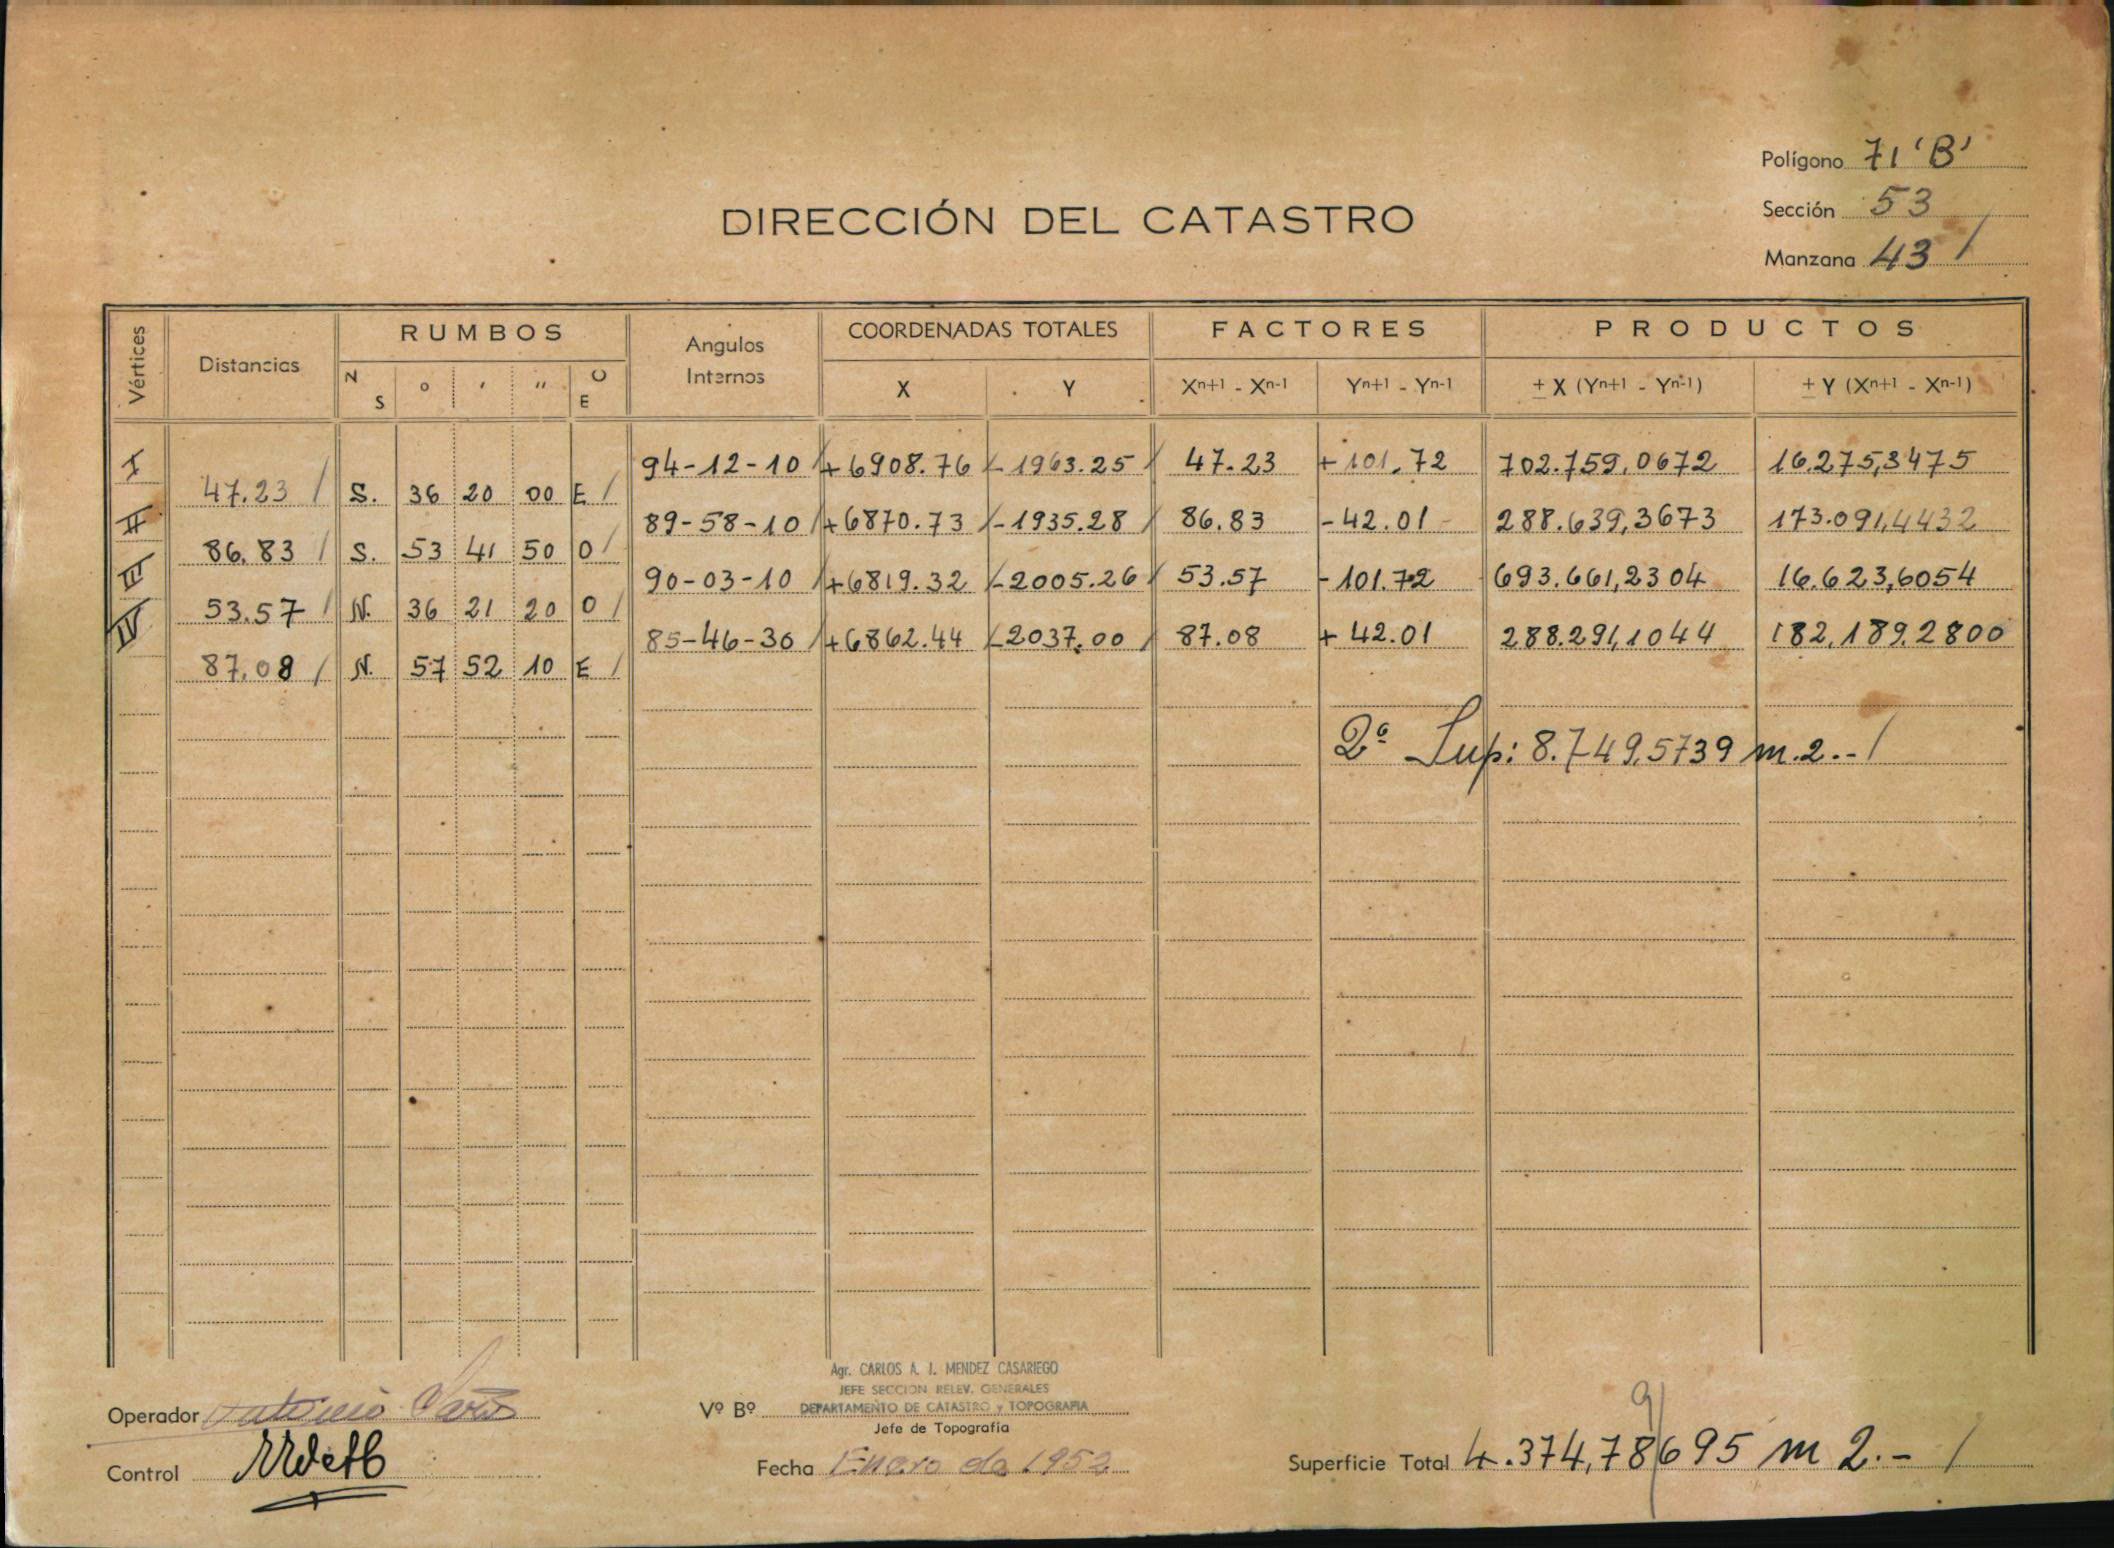 Polígono 71 'B'
Sección 53
Manzana 43 /
DIRECCIÓN DEL CATASTRO
Vértices Distancias RUMBOS Angulos Internos COORDENADAS TOTALES FACTORES PRODUCTOS
N S ° ' " O E X Y Xn+1 - Xn-1 Yn+1 - Yn-1 ± X (Yn+1 - Yn-1) ± Y (Xn+1 - Xn-1)
I 94-12-10 / +6908.76 / -1963.25 / 47.23 +101.72 702.759,0672 16.275,3475
47.23 / S. 36 20 00 E /
II 89-58-10 / +6870.73 / -1935.28 / 86.83 -42.01 288.639,3673 173.091,4432
86.83 / S. 53 41 50 O /
III 90-03-10 / +6819.32 / -2005.26 / 53.57 -101.72 693.661,2304 16.623,6054
53.57 / N. 36 21 20 O /
IV 85-46-30 / +6862.44 / -2037.00 / 87.08 + 42.01 288.291,1044 182.189.2800
87.08 / N. 57 52 10 E /
2ª Sup: 8.749,5739 m.2.- /
Agr. CARLOS A. J. MENDEZ CASARIEGO
JEFE SECCION RELEV. GENERALES
Operador Antonio Vº Bº DEPARTAMENTO DE CATASTRO y TOPOGRAFIA
Jefe de Topografía
9
Control Fecha Enero de 1952 Superficie Total 4.374,78695 m 2.- /